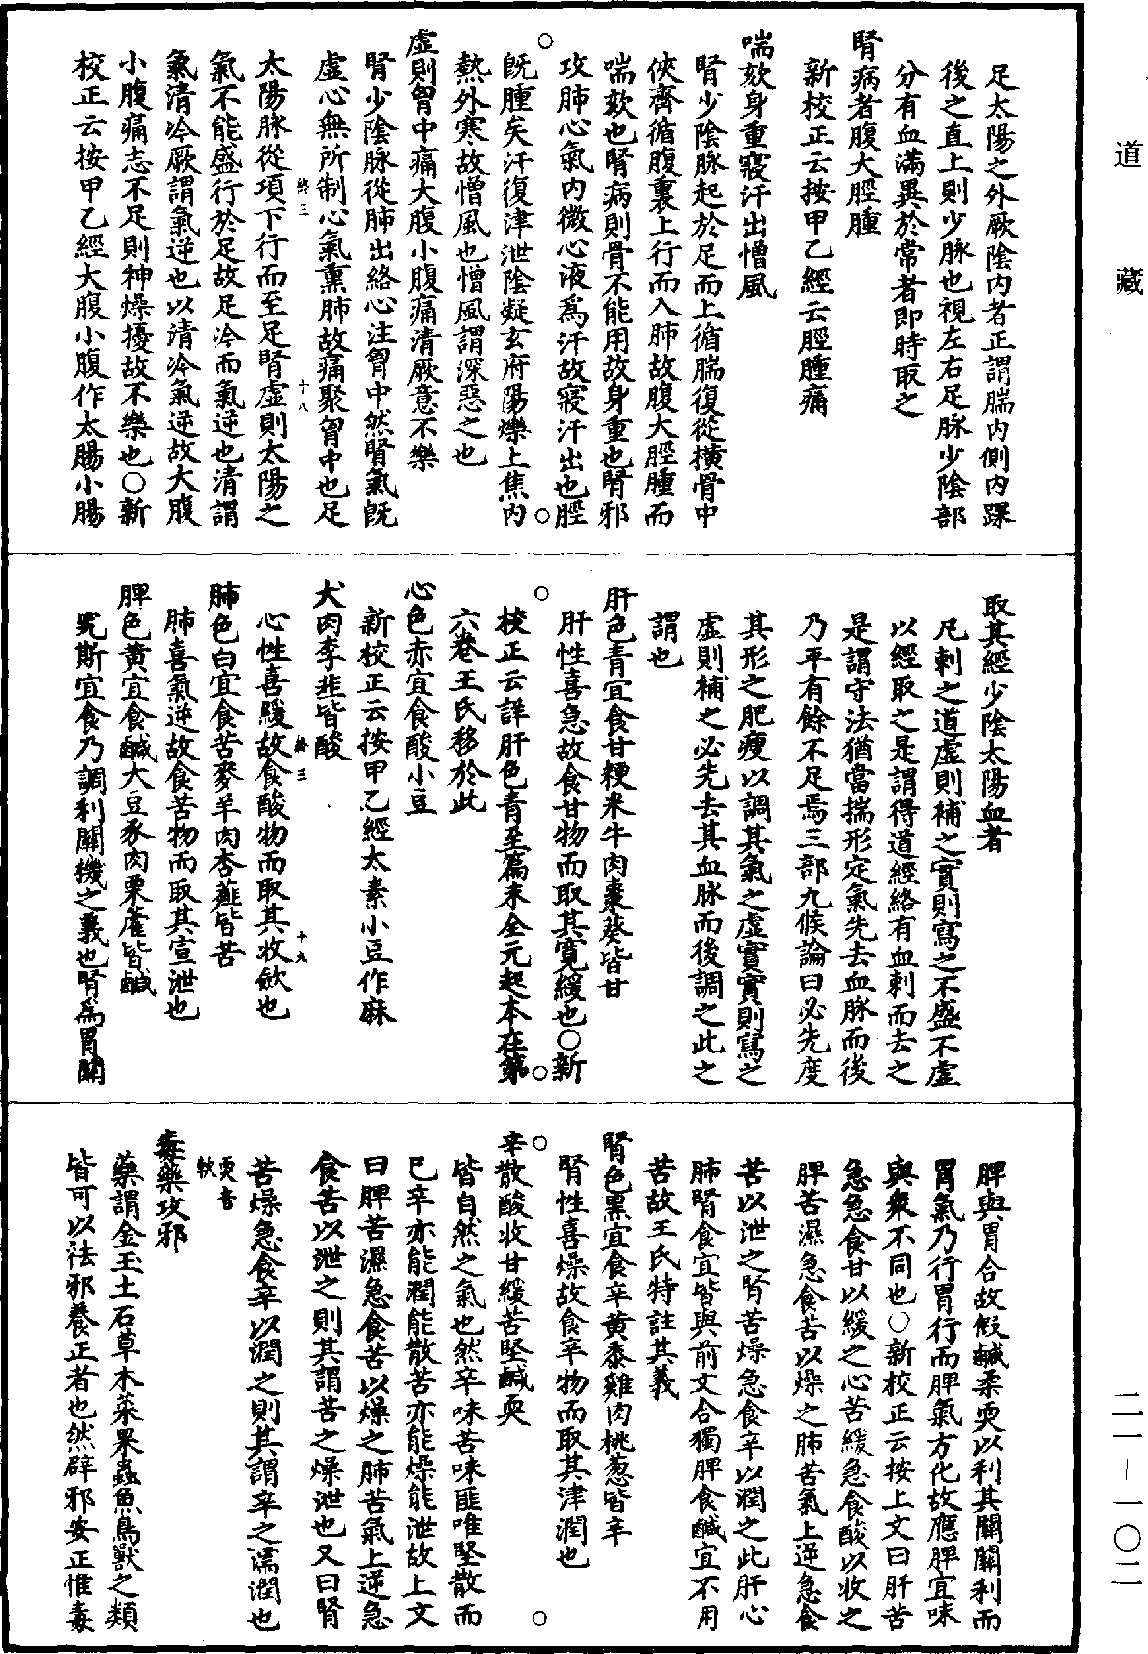 道藏
足太陽之外厥陰內者正謂腨內側內踝
後之直上則少脉也視左右足脉少陰部
分有血滿異於常者即時取之
腎病者腹大脛腫
新校正云按甲乙經云脛腫痛
喘欬身重寢汗出憎風
腎少陰脉起於足而上循腨復從橫骨中
俠齊循腹裏上行而入肺故腹大脛腫而
喘欬也腎病則骨不能用故身重也腎邪
攻肺心氣內微心液爲汗故寢汗出也脛
既腫矣汗復津泄陰凝玄府陽爍上焦內
熱外寒故憎風也憎風謂深惡之也
虛則胷中痛大腹小腹痛清厥意不樂
腎少陰脉從肺出絡心注胷中然腎氣既
虛心無所制心氣熏肺故痛聚胷中也足
太陽脉從項下行而至足腎虛則太陽之
氣不能盛行於足故足冷而氣逆也清謂
氣清冷厥謂氣逆也以清冷氣逆故大腹
小腹痛志不足則神燥擾故不樂也○新
校正云按甲乙經大腹小腹作太腸小腸
終三 十八
取其經少陰太陽血者
凡刺之道虛則補之實則寫之不盛不虛
以經取之是謂得道經絡有血刺而去之
是謂守法猶當揣形定氣先去血脉而後
乃平有餘不足焉三部九候論曰必先度
其形之肥瘦以調其氣之虛實實則寫之
虛則補之必先去其血脉而後調之此之
謂也
肝色青宜食甘粳米牛肉棗葵皆甘
肝性喜急故食甘物而取其寬緩也○新
校正云詳肝色青至篇末全元起本在第
六卷王氏移於此
心色赤宜食酸小豆
新校正云按甲乙經太素小豆作麻
犬肉李韭皆酸
心性喜緩故食酸物而取其收斂也
肺色白宜食苦麥羊肉杏薤皆苦
肺喜氣逆故食苦物而取其宣泄也
脾色黃宜食鹹大豆豕肉栗藿皆鹹
究斯宜食乃調利關機之義也腎爲胃關
終三 十九
脾與胃合故假鹹柔耎以利其關關利而
胃氣乃行胃行而脾氣方化故應脾宜味
與衆不同也○新校正云按上文曰肝苦
急急食甘以緩之心苦緩急食酸以收之
脾苦濕急食苦以燥之肺苦氣上逆急食
苦以泄之腎苦燥急食辛以潤之此肝心
肺腎食宜皆與前文合獨脾食鹹宜不用
苦故王氏特註其義
腎色黑宜食辛黃黍雞肉桃葱皆辛
腎性喜燥故食辛物而取其津潤也
辛散酸收甘緩苦堅鹹耎
皆自然之氣也然辛味苦味匪唯堅散而
已辛亦能潤能散苦亦能燥能泄故上文
曰脾苦濕急食苦以燥之肺苦氣上逆急
食苦以泄之則其謂苦之燥泄也又曰腎
苦燥急食辛以潤之則其謂辛之濡潤也
耎音
軟
毒藥攻邪
藥謂金玉土石草木菜果蟲魚鳥獸之類
皆可以祛邪養正者也然辟邪安正惟毒
二一—一〇二